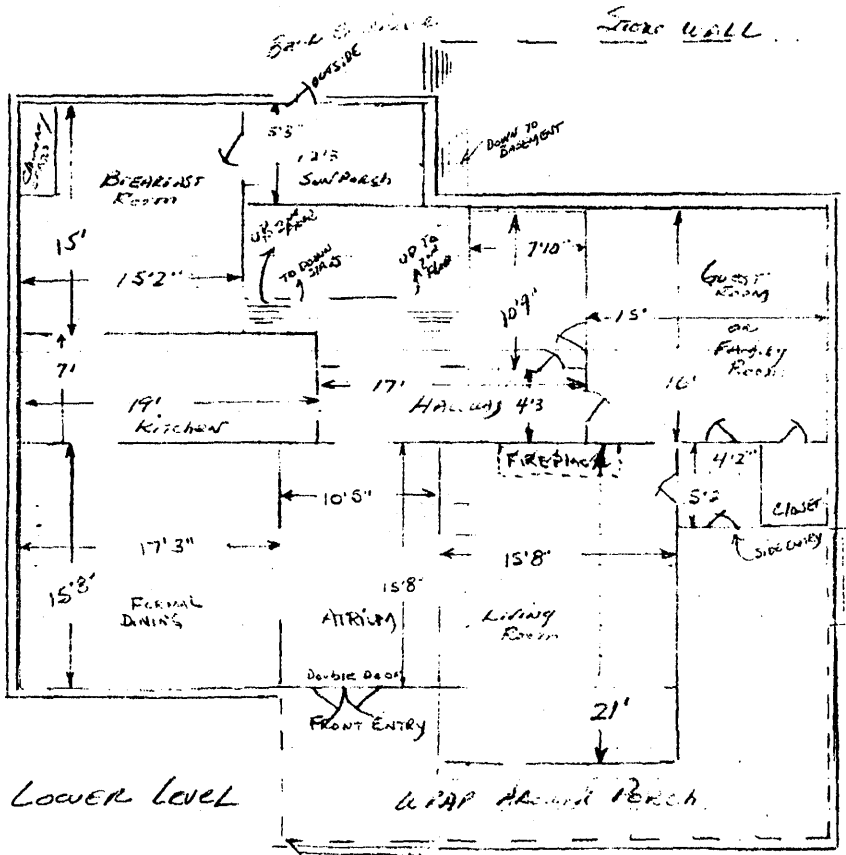 STORE WALL
OUTSIDE
5'3"
12'3
SUN PORCH
DOWN TO
BASEMENT
BREAKFAST
ROOM
15'
15'2"
UP TO 2ND
FLOOR
TO DOWN
STAIRS
UP TO
2ND
FLOOR
7'10"
10'9"
GUEST
ROOM
OR
FAMILY
ROOM
15'
16'
7'
19'
KITCHEN
17'
HALLWAY 4'3
FIREPLACE
4'2"
5'2
CLOSET
SIDE ENTRY
10'5"
17'3"
15'8"
15'8"
15'8"
FORMAL
DINING
ATRIUM
LIVING
ROOM
DOUBLE DOOR
FRONT ENTRY
21'
LOWER LEVEL
WRAP AROUND PORCH